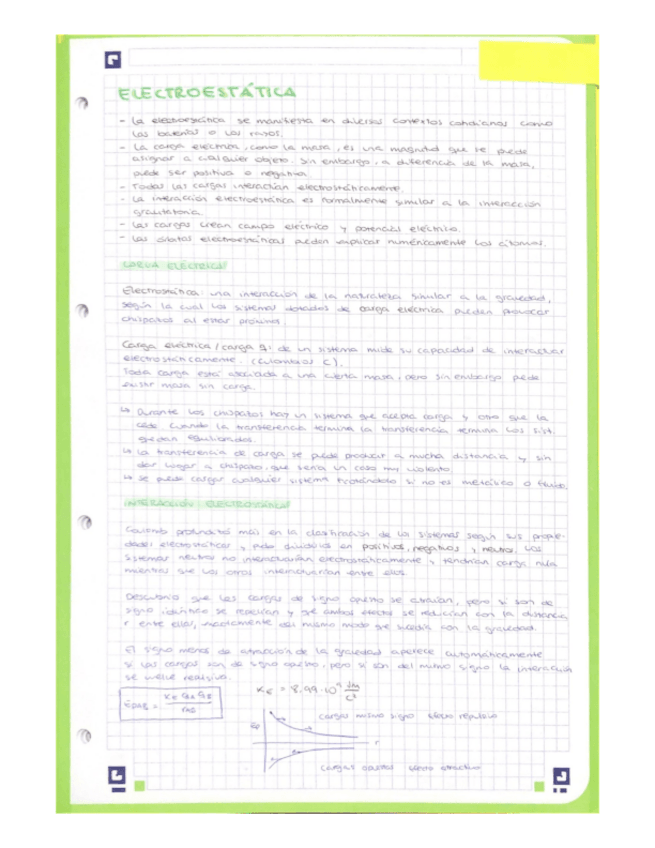 ELECTROESTÁTICA
- La electroestática se manifiesta en diversos contextos cotidianos como
las baterías o los rayos.
- La carga eléctrica, como la masa, es una magnitud que se puede
asignar a cualquier objeto. Sin embargo, a diferencia de la masa,
puede ser positiva o negativa.
- Todas las cargas interactúan electrostáticamente.
- La interacción electroestática es formalmente similar a la interacción
gravitatoria.
- Las cargas crean campo eléctrico y potencial eléctrico.
- Las órbitas electroestáticas pueden explicar numéricamente los átomos.
CARGA ELÉCTRICA
Electrostática: una interacción de la naturaleza similar a la gravedad,
según la cual los sistemas dotados de carga eléctrica pueden provocar
chispazos al estar próximos.
Carga eléctrica / carga q: de un sistema mide su capacidad de interactuar
electrostáticamente. (Culombios C).
Toda carga está asociada a una cierta masa, pero sin embargo puede
existir masa sin carga.
↳ Durante los chispazos hay un sistema que acepta carga y otro que la
cede. Cuando la transferencia termina la transferencia termina los sist.
quedan equilibrados.
↳ La transferencia de carga se puede producir a mucha distancia y sin
dar lugar a chispazo, que sería un caso muy violento.
↳ Se puede cargar cualquier sistema frotándolo si no es metálico o fluido.
INTERACCIÓN ELECTROSTÁTICA
Coulomb profundizó más en la clasificación de los sistemas según sus propie-
dades electrostáticas y pudo dividirlos en positivos, negativos y neutros. Los
sistemas neutros no interactuarían electrostáticamente y tendrían carga nula
mientras que los otros interactuarían entre ellos.
Descubrió que las cargas de signo opuesto se atraían, pero si son de
signo idéntico se repelían y que ambos efectos se reducían con la distancia
r entre ellas, exactamente del mismo modo que sucedía con la gravedad.
El signo menos de atracción de la gravedad aparece automáticamente
si las cargas son de signo opuesto, pero si son del mismo signo la interacción
se vuelve repulsiva.
EpAB = Ke qA qB / rAB
Ke = 8.99 · 10⁹ Jm / C²
Ep
cargas mismo signo efecto repulsivo
r
cargas opuestas efecto atractivo